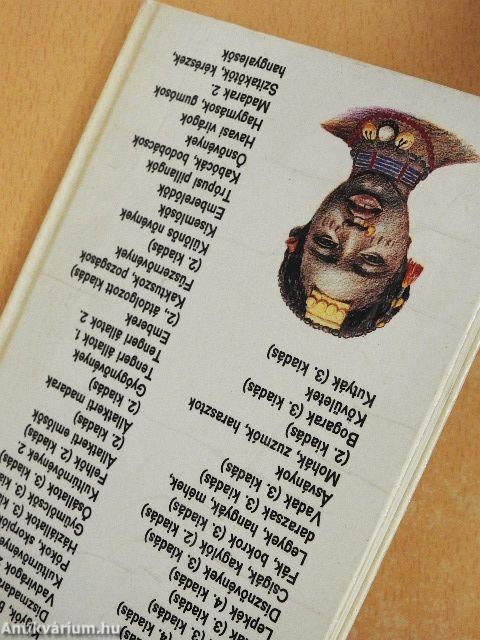 (4. kiadás)
(3. kiadás)
Lepkék (4. kiadás)
Dísznövények
Csigák, kagylók (2. kiadás)
Fák, bokrok (3. kiadás)
Legyek, hangyák, méhek,
darazsak (3. kiadás)
Vadak (3. kiadás)
Ásványok
Mohák, zuzmók, harasztok
(2. kiadás)
Bogarak (3. kiadás)
Kövületek
Kutyák (3. kiadás)
Vadvirágok 2
Pókok,
Háziállatok (3. ki
Gyümölcsök (3. ki
Ősállatok (2. kiadás)
Kultúrnövények 2.
Felhők (2. kiadás)
Állatkerti emlősök
(2. kiadás)
Állatkerti madarak
(2. kiadás)
Gyógynövények
Tengeri állatok 1.
Tengeri állatok 2.
Emberek
(2., átdolgozott kiadás)
Kaktuszok, pozsgások
Fűszernövények
(2. kiadás)
Különös növények
Kisemlősök
Emberelődök
Trópusi pillangók
Kabócák, bodobácsok
Ősnövények
Havasi virágok
Hagymások, gumósok
Madarak 2.
Szitakötők, kérészek,
hangyalesők
Antikvárium.hu